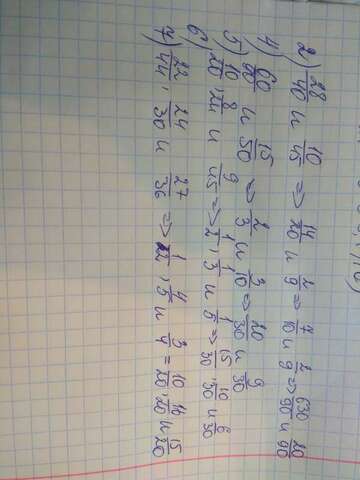 2) 28/40 и 10/45 => 14/20 и 2/9 => 7/10 и 2/9 => 630/90 и 20/90
4 60/90 и 15/50 => 2/3 и 3/10 => 20/30 и 9/30
5) 10/20, 8/24 и 9/45 => 1/2, 1/3 и 1/5 => 15/30, 10/30 и 6/30
6)
7) 22/44, 24/30 и 27/36 => 1/2, 4/5 и 3/4 = 10/20, 16/20 и 15/20